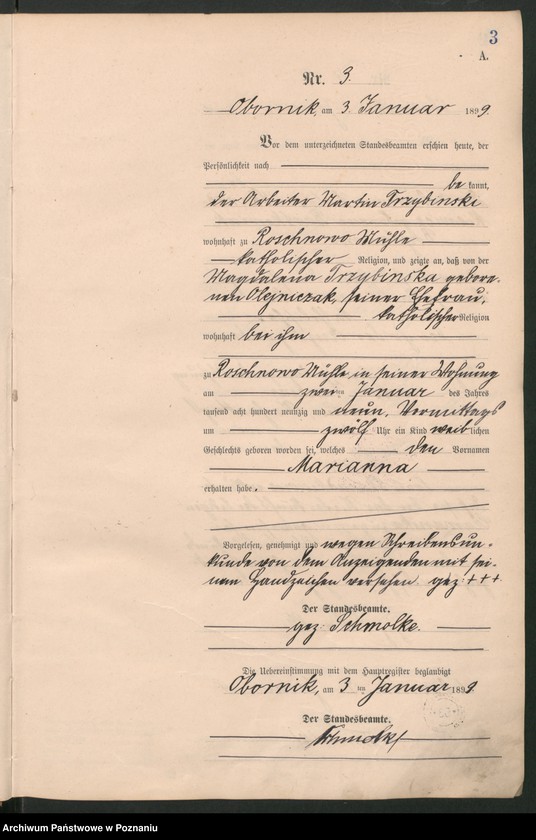 3
A.
Nr. 3.
Obornik, am 3. Januar 1899.
Vor dem unterzeichneten Standesbeamten erschien heute, der
Persönlichkeit nach
be kannt,
der Arbeiter Martin Trzybinski
wohnhaft zu Roschnowo Mühle
katholischer Religion, und zeigte an, daß von der
Magdalena Trzybinska gebore-
nen Olejniczak, seiner Ehefrau,
katholischer Religion
wohnhaft bei ihm
zu Roschnowo Mühle in seiner Wohnung
am zwei ten Januar des Jahres
tausend acht hundert neunzig und neun, Vormittags
um zwölf Uhr ein Kind weib lichen
Geschlechts geboren worden sei, welches den Vornamen
Marianna
erhalten habe.
Vorgelesen, genehmigt und wegen Schreibensun-
kunde von dem Anzeigenden mit sei-
nem Handzeichen versehen gez: +++
Der Standesbeamte.
gez: Schmolke.
Die Uebereinstimmung mit dem Hauptregister beglaubigt
Obornik, am 3 ten Januar 1899
Der Standesbeamte.
Schmolke
Archiwum Państwowe w Poznaniu